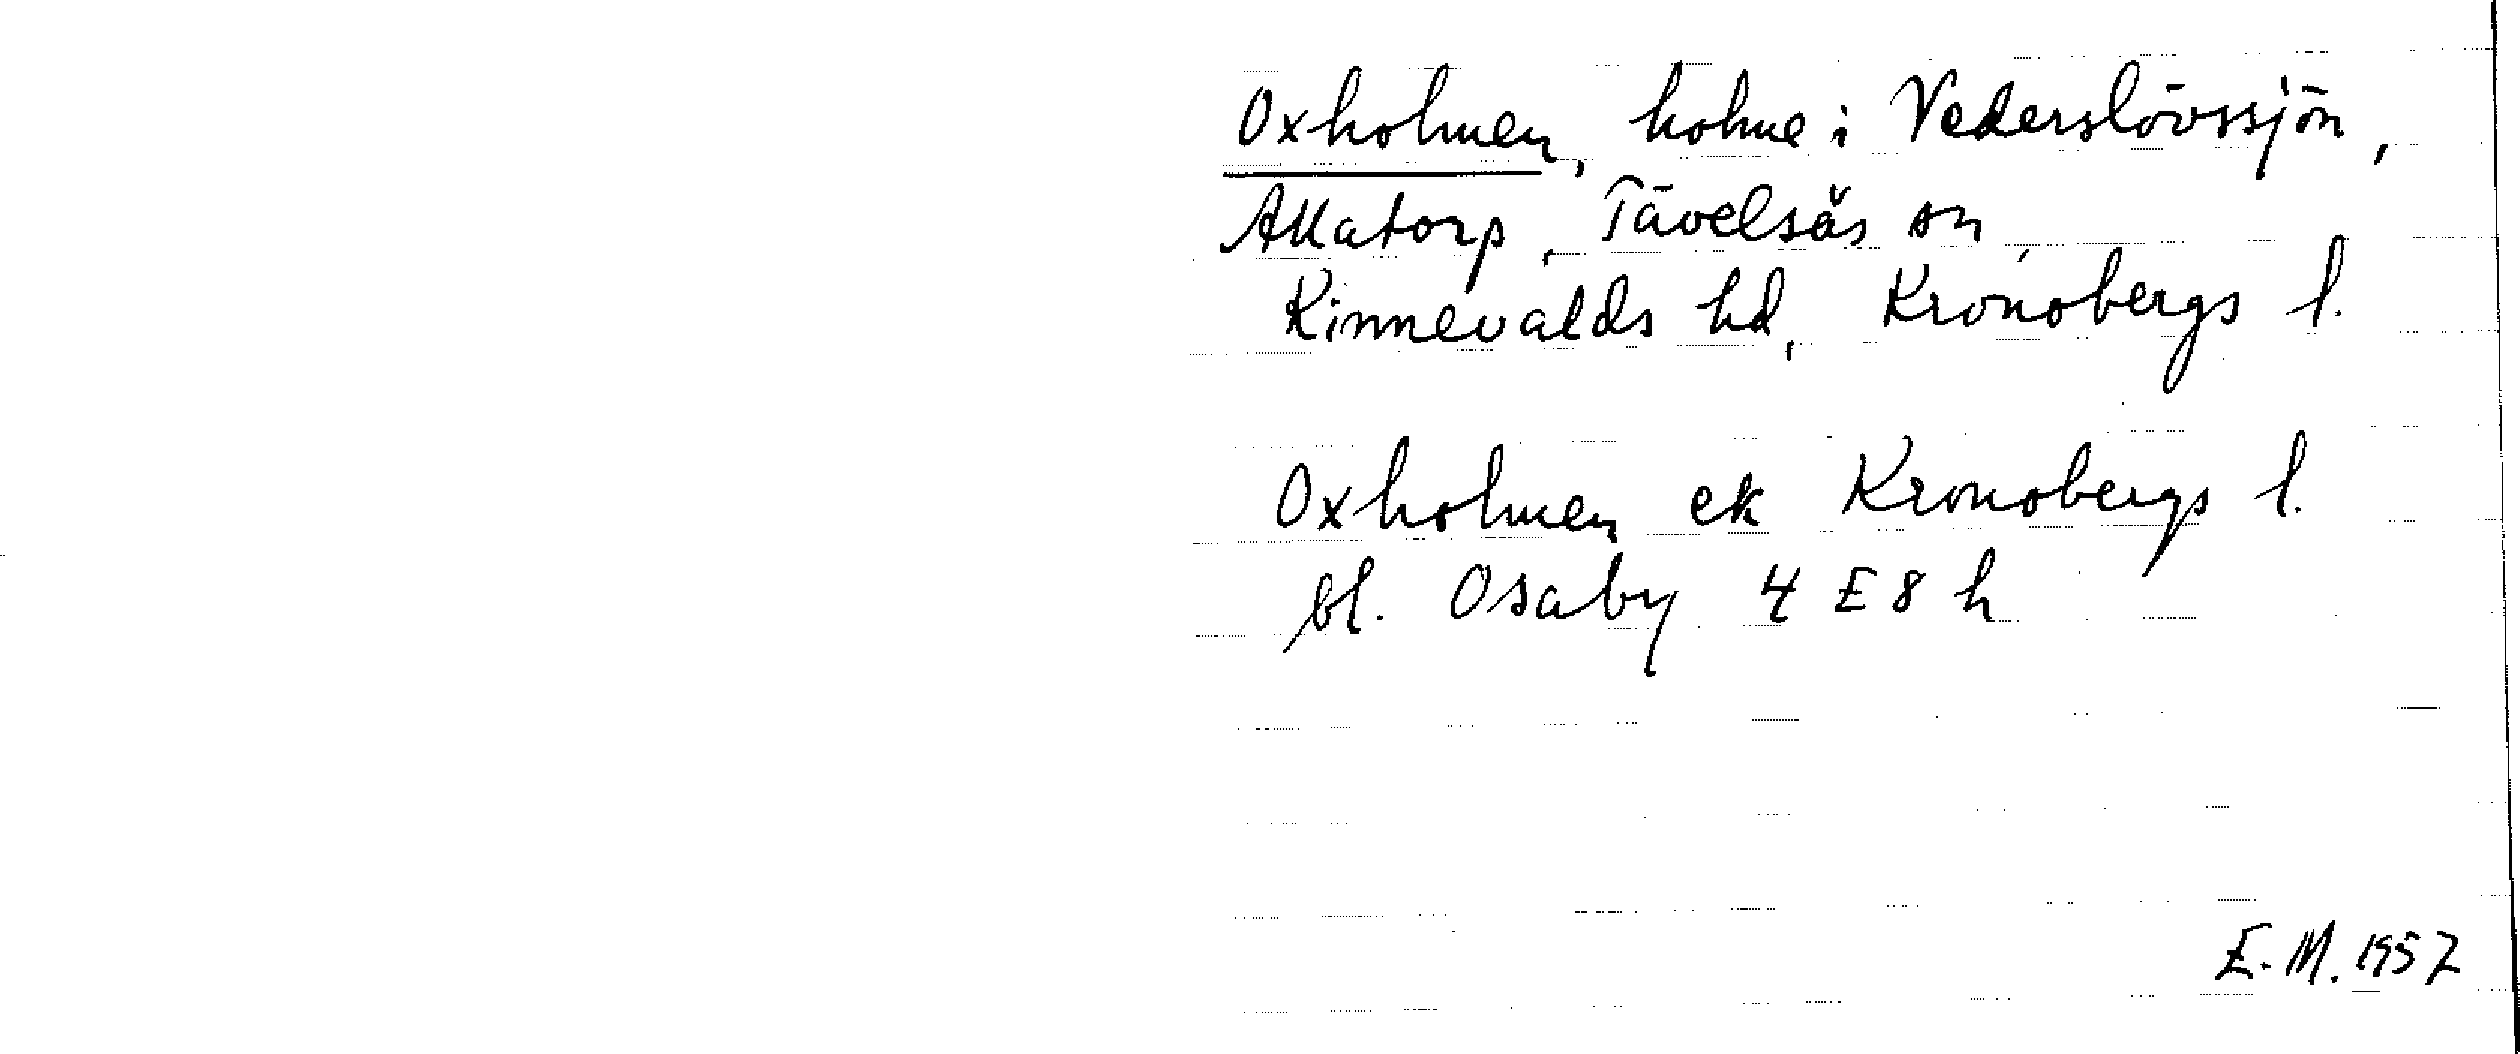 Oxholmen, holme i Vederslövssjön,
Allatorp, Tävelsås sn,
Kinnevalds hd, Kronobergs l.
Oxholmen ek Kronobergs l.
bl. Osaby 4 E 8 h
E. M. 1957